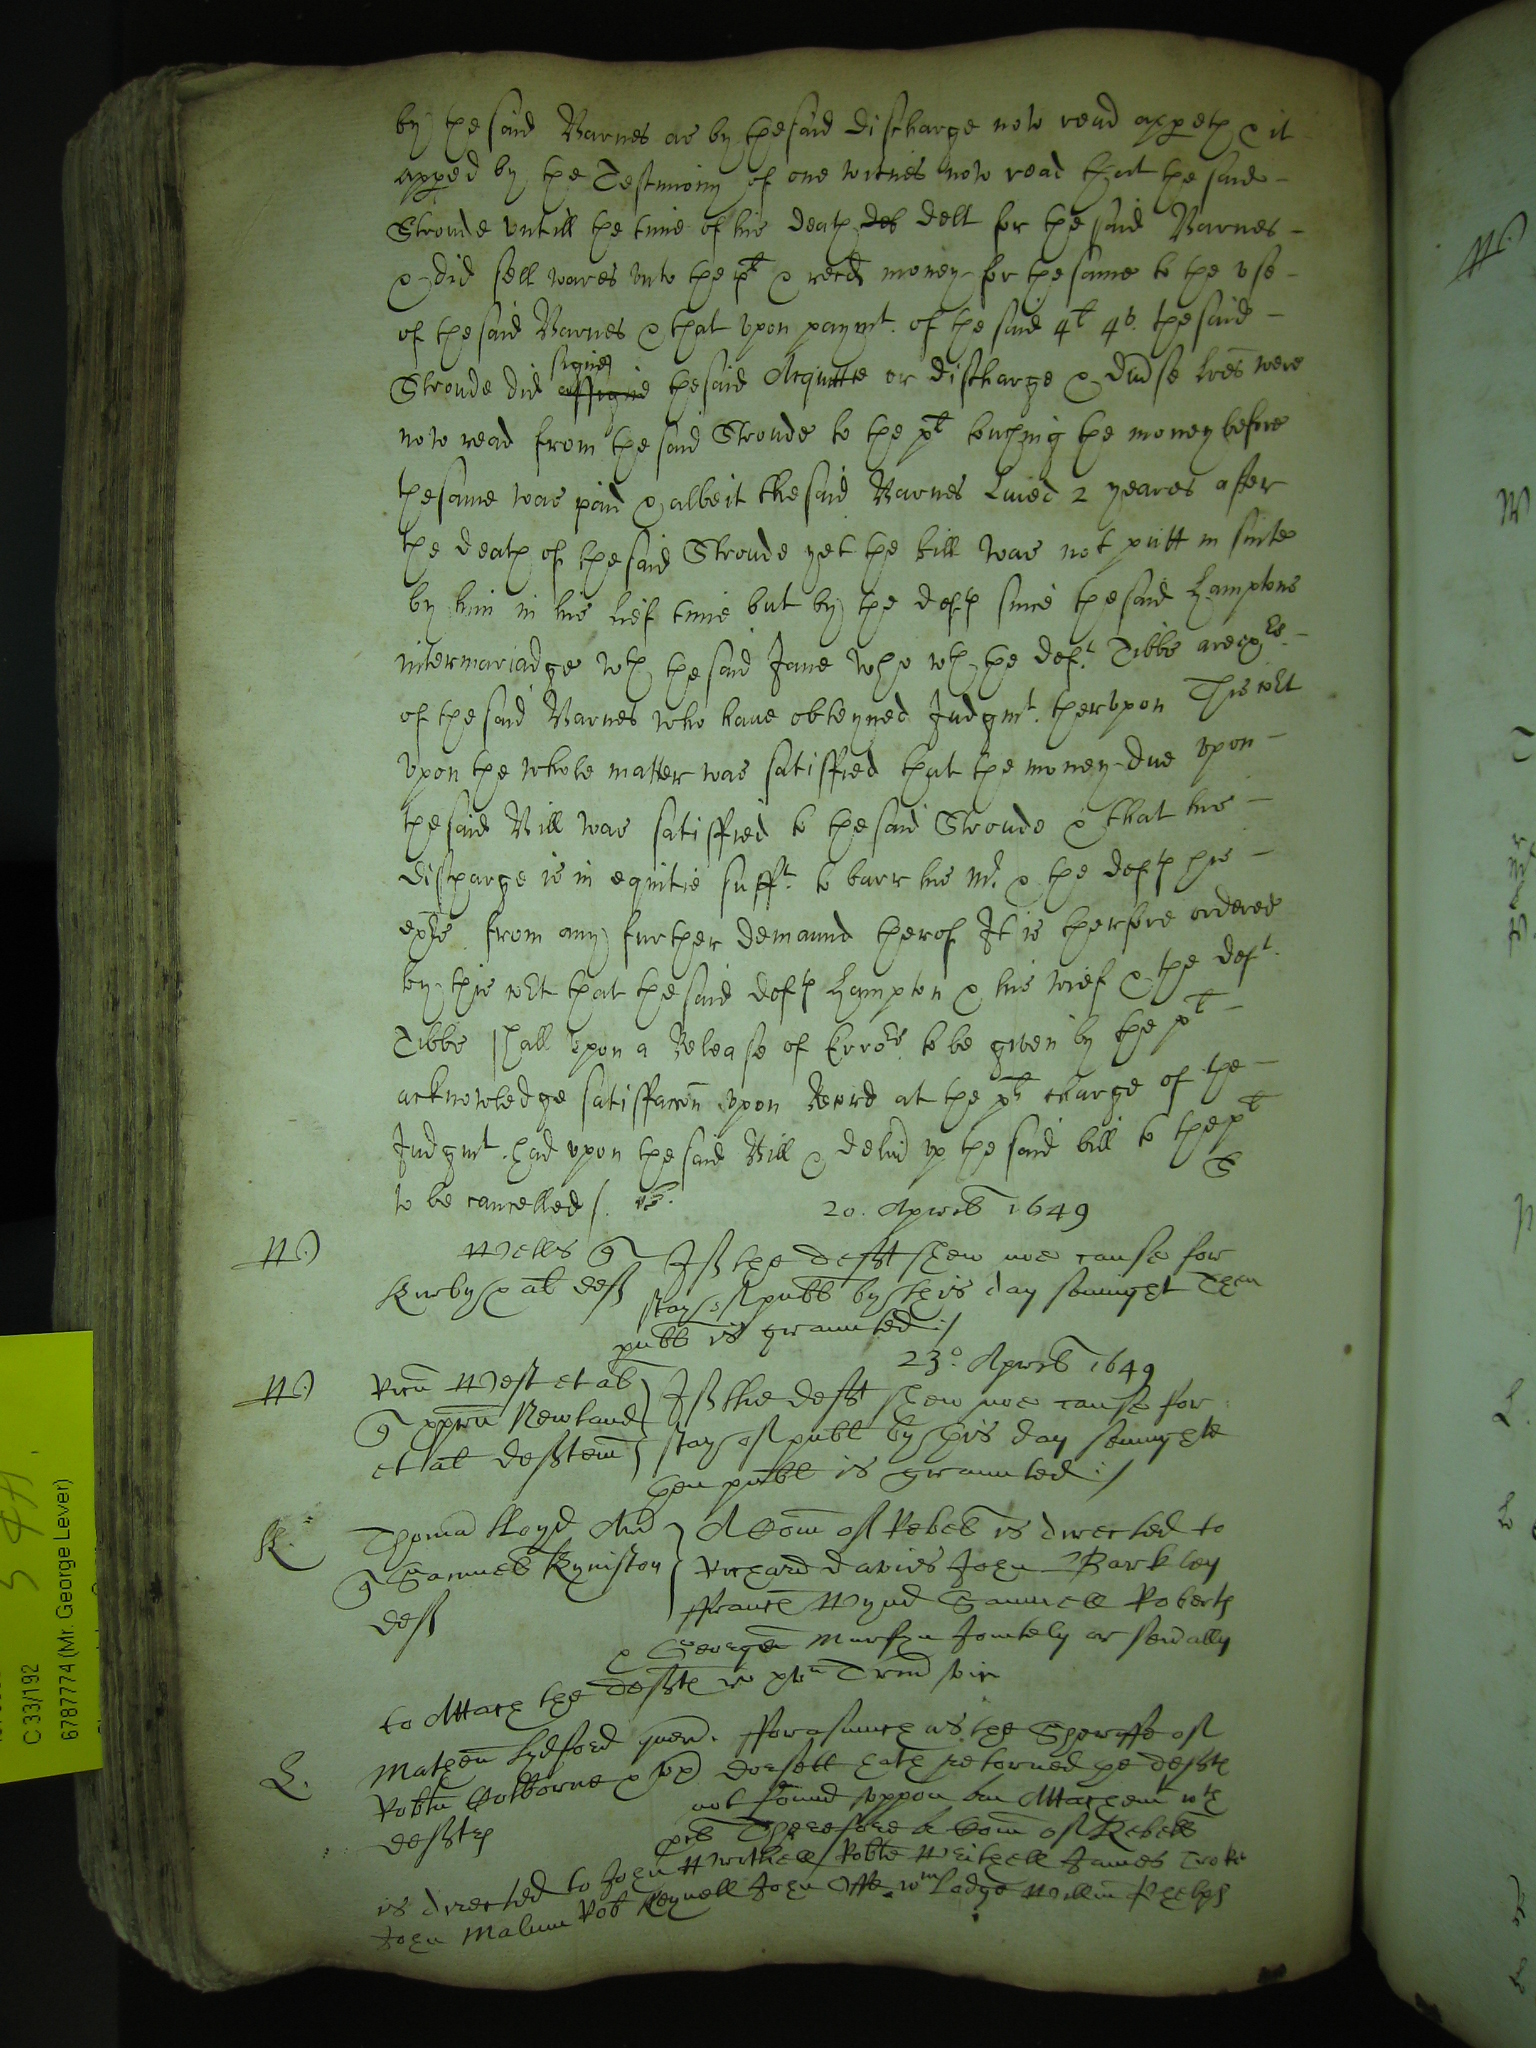 by the said Barnes as by the said discharge now read appeth & it
apped by the Testimony of one witnes now read that the said
Stroude untill the time of his death did delt for the said Barnes
& did sell wares unto the plt & recd money for the same to the use
of the said Barnes & that upon paymt. of the said 4l 4s. the said
signe
Stroude did assigne the said Acquitte or discharge & divse lres were
now read from the said Stroude to the plt touching the money before
the same was paid & albeit the said Barnes Lived 2 yeares after
the death of the said Stroude yet the bill was not putt in suite
by him in his lief time but by the defts since the said Hamptons
intermariadge wth the said Jane who wth the deft. Tibbs are exrs
of the said Barnes who have obteyned Judgmt. therupon This Cort
upon the whole matter was satisfied that the money due upon
the said Bill was satisfied to the said Stroude & that his
discharge is in equitie sufft. to barr his Mr. & the defts his
exrs from any further demaund therof It is therfore ordered
by this Cort that the said defts Hampton & his wief & the deft.
Tibbs shall upon a Release of Errors. to be given by the plt
acknowledge satisfaccon upon Record at the plts charge of the
Judgmt. had upon the said Bill & delivd up the said bill to the plt
to be cancelled /.
20. Aprilis 1649
Wells
If the deft shew noe cause for
Kirby & al defts
stay of publ by this day sennight Then
publ is graunted :/
23o. Aprilis 1649
W
West et al
If the deft shew noe cause for
Newland
stay of publ by this day sennight
et al
then publ is graunted :/
K.
Thoma Lloyd
A Com of Rebell is directed to
Samuel Kyniston
Richard Davies John Barkley
deft
ffrancis Wynd Samuell Roberts
& George Jointely or sevally
to Attach the defts
L.
Mathew Lydford quer. fforasmuch as the Sheriffe of
Robtu Colborne & ux Dorsett hath retorned the defts
defts
not found uppon an Attachemt wth
Therefore a Com of Rebell
is directed to John Robte James
John Rob Reynell John wm Lodge Willm Phelps
C 33/192
67877774 (Mr. George Lever)